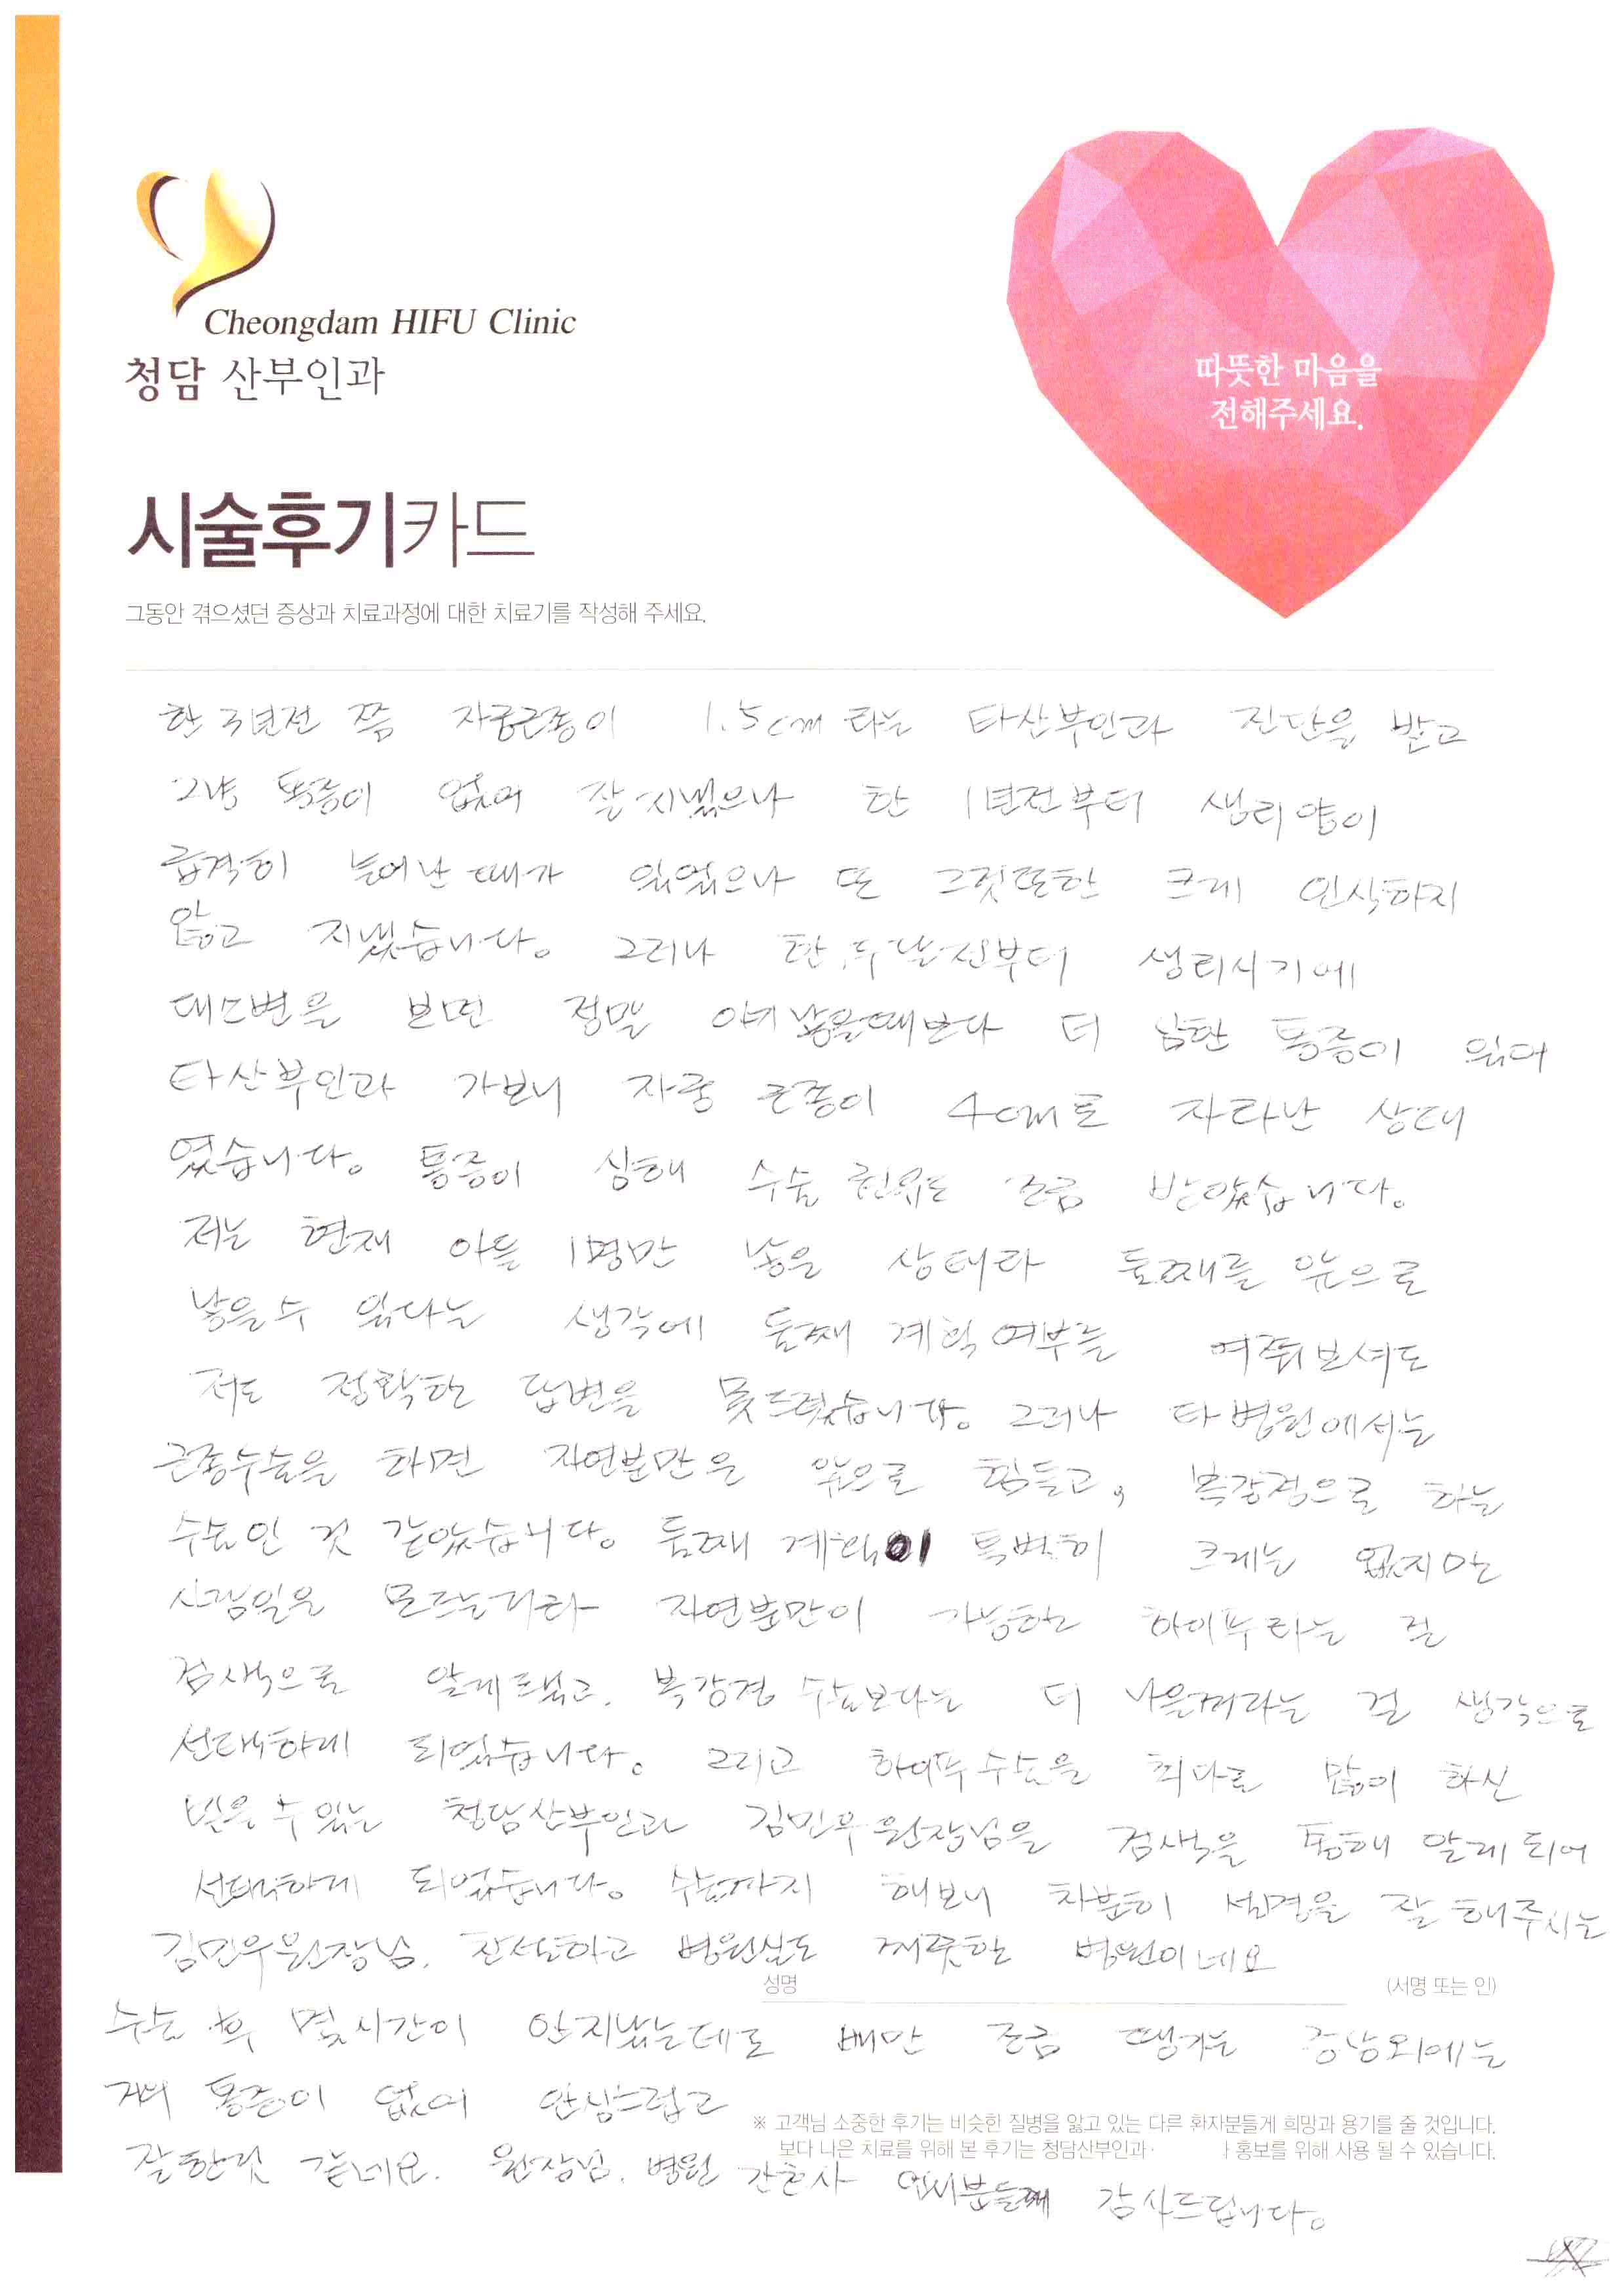 Cheongdam HIFU Clinic
청담 산부인과
따뜻한 마음을
전해주세요.
시술후기카드
그동안 겪으셨던 증상과 치료과정에 대한 치료기를 작성해 주세요.
한 3년전 쯤 자궁근종이 1.5cm 라는 타산부인과 진단을 받고
그냥 통증이 없어 잘 지냈으나 한 1년전부터 생리 양이
급격히 늘어난 때가 있었으나 또 그것또한 크게 인식하지
않고 지냈습니다. 그러나 한, 두달전부터 생리시기에
대소변을 보면 정말 아기 낳을때보다 더 심한 통증이 있어
타산부인과 가보니 자궁 근종이 4cm로 자라난 상태
였습니다. 통증이 심해 수술 권유도 조금 받았습니다.
저는 현재 아들 1명만 낳은 상태라 둘째를 앞으로
낳을수 있다는 생각에 둘째 계획 여부를 여쭤보셔도
저도 정확한 답변을 못드렸습니다. 그러나 타 병원에서는
근종수술을 하면 자연분만은 앞으로 힘들고, 복강경으로 하는
수술인 것 같았습니다. 둘째 계획이 특별히 크게는 없지만
사람일은 모르는거라 자연분만이 가능한 하이푸라는 걸
검색으로 알게됐고, 복강경 수술보다는 더 나을꺼라는 걸 생각으로
선택하게 되었습니다. 그리고 하이푸수술을 최다로 많이 하신
믿을 수 있는 청담산부인과 김민우 원장님을 검색을 통해 알게 되어
선택하게 되었습니다. 수술까지 해보니 차분히 설명을 잘 해주시는
김민우원장님, 친절하고 병원실도 깨끗한 병원이네요
성명
(서명 또는 인)
수술 후 몇시간이 안지났는데도 배만 조금 땡기는 증상외에는
거의 통증이 없어 안심스럽고
※ 고객님 소중한 후기는 비슷한 질병을 앓고 있는 다른 환자분들게 희망과 용기를 줄 것입니다.
보다 나은 치료를 위해 본 후기는 청담산부인과 홍보를 위해 사용 될 수 있습니다.
잘한것 같네요. 원장님, 병원 간호사 언니분들께 감사드립니다.